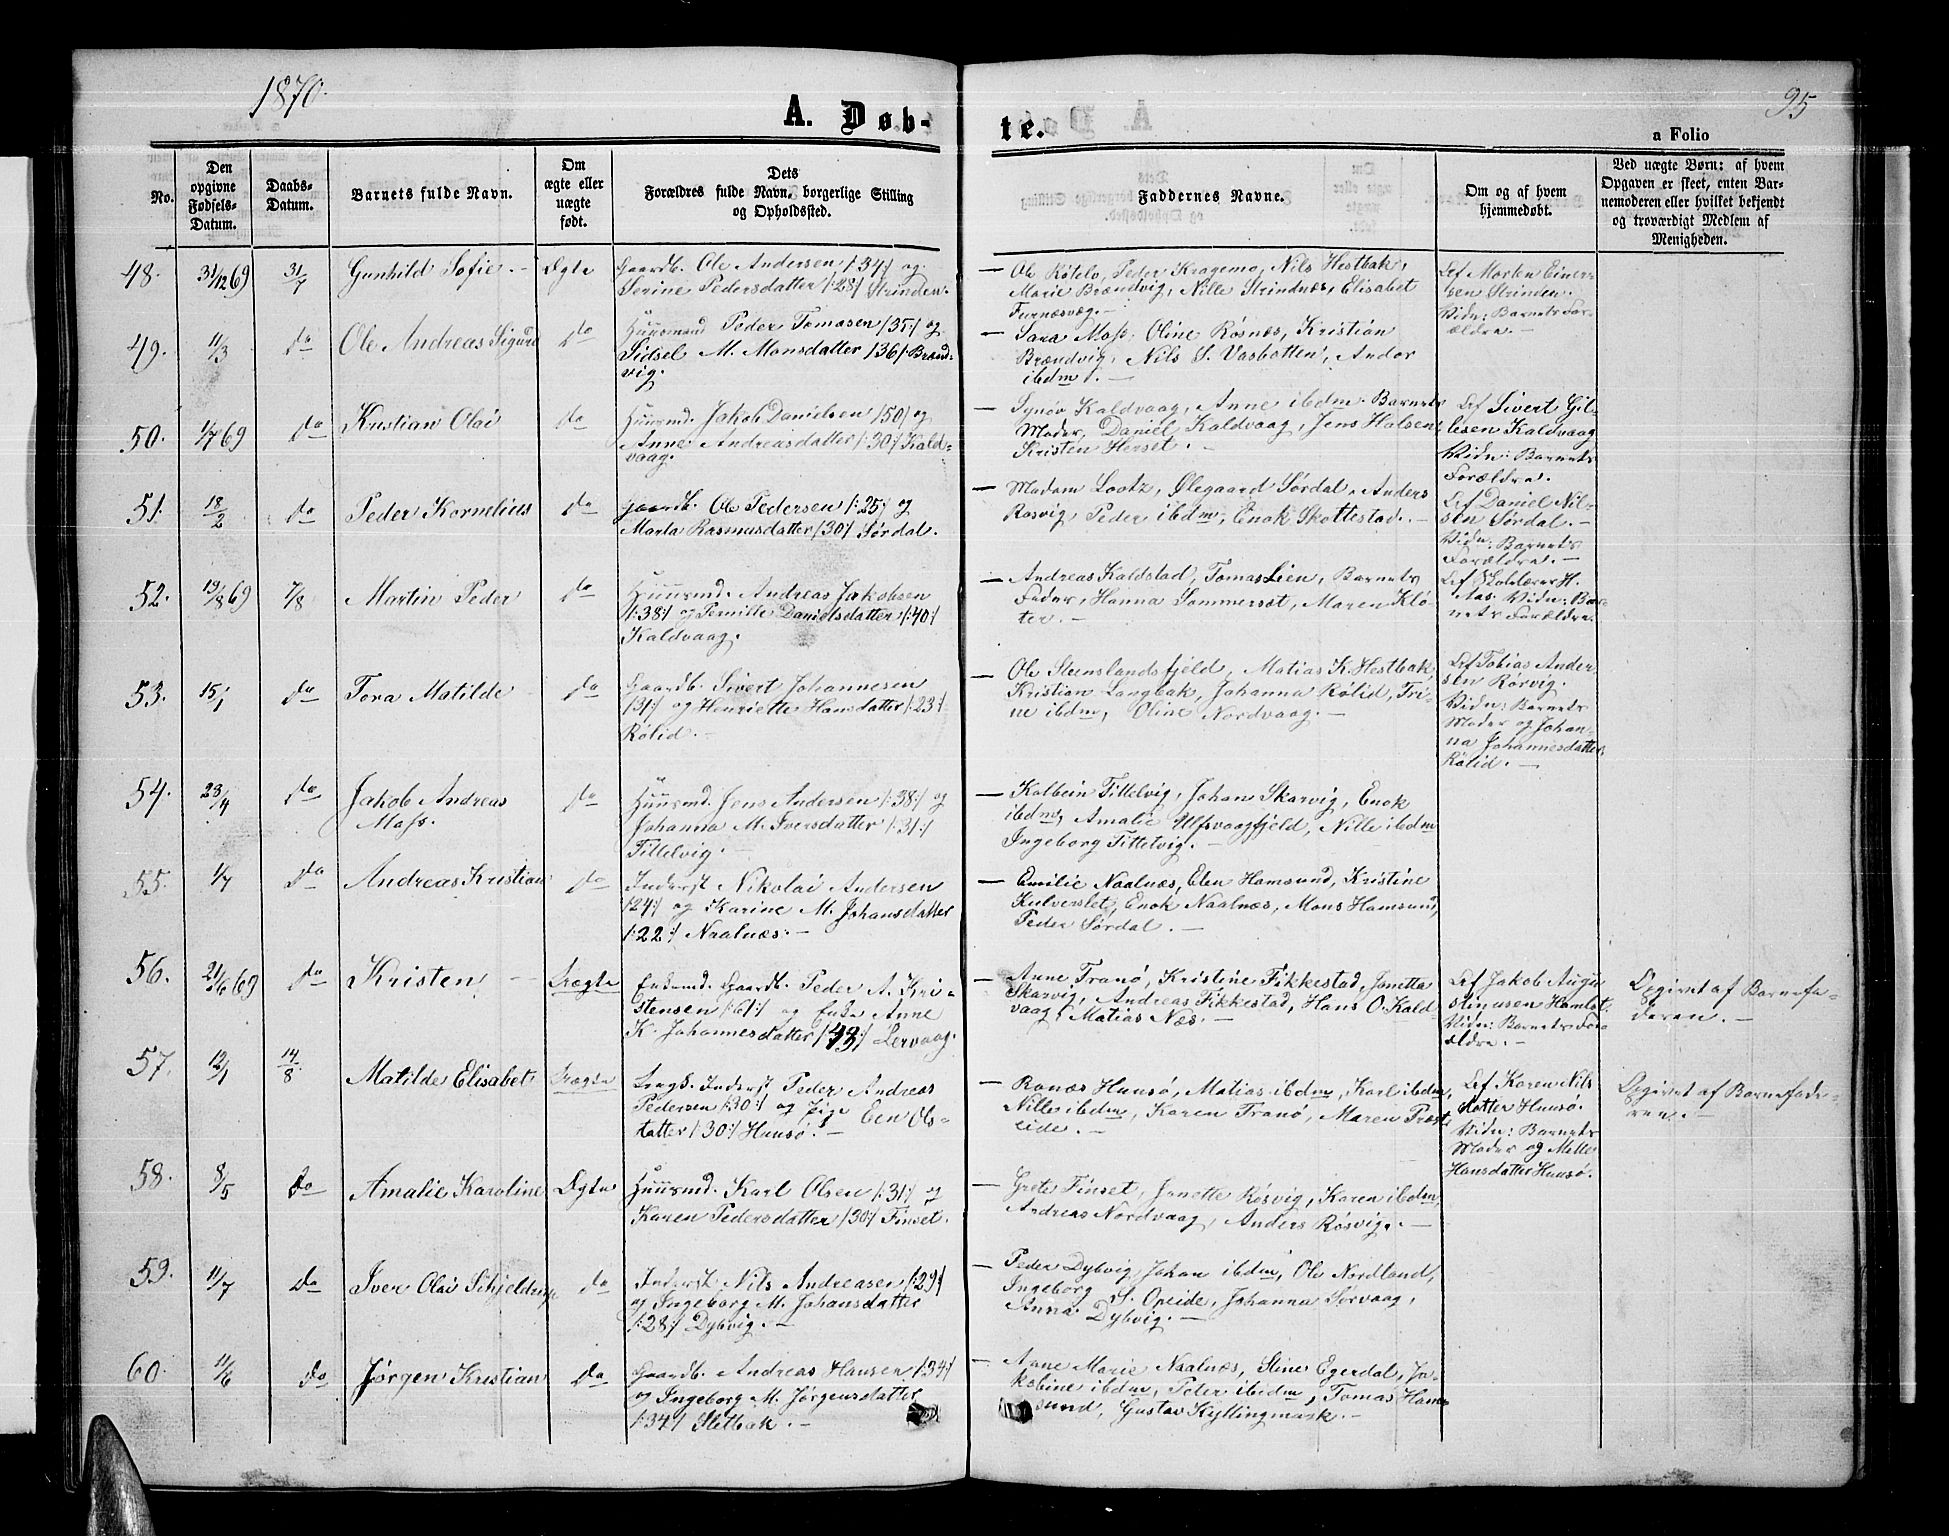 1870.
95
A. Døb-
te.
a Folio
No.
Den
opgivne
Fødsels-
Datum.
Daabs-
Datum.
Barnets fulde Navn.
Om
ægte eller
uægte
født.
Dets
Forældres fulde Navn, borgerlige Stilling
og Opholdssted.
Faddernes Navne.
Om og af hvem
hjemmedøbt.
Ved uægte Børn: af hvem
Opgaven er skeet, enten Bar-
nemoderen eller hvilket bekjendt
og troværdigt Medlem af
Menigheden.
48. 31/12 69 31/7 Gunhild Sofie. - Ægte
Gaardb. Ole Andersen /:34:/ og
Serine Pedersdatter /:28:/ Strinden.
— Ole Røtelv, Peder Kragemo, Nils Hestbak,
Marie Brændvig, Nille Strindnæs, Elisabet
Furnæsvæg. —
Af Morten Einer-
sen Strinden.
Vidn: Barnets For-
ældre. —
49. 11/3 do Ole Andreas Sigurd do
Huusmand Peder Tomasen /:35:/ og
Sidsel M. Monsdatter /:36:/ Brænd-
vig.
— Sara Mass, Oline Røsnæs, Kristian
Brændvig, Nils S. Vasbotten, Andor
ibdm. —
50. 1/7 69 do Kristian Olai do
Huusmd. Jakob Danielsen /:50:/ og
Anne Andreasdatter /:30:/ Kald-
vaag.
— Synøv Kaldvaag, Anne ibdm. Barnets
Moder, Daniel Kaldvaag, Jens Halsen,
Kristen Herset. —
Af Sivert Gil-
lesen Kaldvaag
Vidn: Barnets
Forældre. —
51. 18/2 do Peder Kornelius do
Gaardb. Ole Pedersen /:25:/ og
Marta Rasmusdatter /:30:/ Sørdal.
— Madam Lootz, Ølegaard Sørdal, Anders
Røsvig, Peder ibdm, Enok Skottestad. —
Af Daniel Nil-
sen Sørdal. —
Vidn: Barnets
Forældre. —
52. 19/8 69 7/8 Martin Peder do
Huusmd. Andreas Jakobsen
/:38:/ og Pernille Danielsdatter /:40:/
Kaldvaag.
— Andreas Kaldstad, Tomas Lien, Barnets
Fader, Hanna Sommerset, Maren Klø-
ter. —
Af Skolelærer H.
Aas. Vidn: Bar-
nets Forældre.
53. 15/1 do Tora Matilde do
Gaardb. Sivert Johannesen
/:31:/ og Henriette Hansdatter /:23:/
Rølid. —
— Ole Steenslandsfjeld, Matias K. Hestbak,
Kristian Langbak, Johanna Rølid, Tri-
ne ibdm, Oline Nordvaag. —
Af Tobias Ander-
sen Rørvig.
Vidn: Barnets
Moder og Johan-
na Johannesdatter
Rølid. —
54. 23/4 do Jakob Andreas
Mass. do
Huusmd. Jens Andersen /:38:/ og
Johanna M. Iversdatter /:31:/
Tittelvig. —
— Kolbein Tittelvig, Johan Skarvig, Enok
ibdm, Amalie Ulfsvaagfjeld, Nille ibdm
Ingeborg Tittelvig. —
55. 1/7 do Andreas Kristian do
Inderst Nikolai Andersen
/:24:/ og Karine M. Johansdatter
/:22:/ Naalnæs. —
— Emilie Naalnæs, Elen Hamsund, Kristine
Kulverslet, Enok Naalnæs, Mons Hamsund,
Peder Sørdal. —
56. 21/6 69 do Kristen — Uægte
Enkemd. Gaardb. Peder A. Kri-
stensen /:61:/ og Enke Anne
K. Johannesdatter /:43:/ Lervaag.
— Anne Tranø, Kristine Fikkestad, Jonetta
Skarvig, Andreas Fikkestad, Hans O. Kald-
vaag, Matias Næs. —
Af Jakob Augu-
stinusen Hamlot.
Vidn: Barnets For-
ældre. —
Opgivet af Barnefa-
deren. —
57. 12/1 14/8 Matilde Elisabet Uægte
Ungk. Inderst Peder Andreas
Pedersen /:30:/ og Pige Een Ols-
datter /:30:/ Huusø. —
— Ranæs Huusø, Matias ibdm, Karl ibdm,
Nille ibdm, Karen Tranø, Maren Præst-
eide. —
Af Karen Nils-
datter Huusø.
Vidn: Barnets
Moder og Mette
Hansdatter Huusø.
Opgivet af Barnefade-
ren. —
58. 8/5 do Amalie Karoline Ægte
Huusmd. Karl Olsen /:31:/ og
Karen Pedersdatter /:30:/ Finset.
— Grete Finset, Janette Røsvig, Karen ibdm,
Andreas Nordvaag, Anders Røsvig. —
59. 11/7 do Iver Olai Schjeldrup do
Inderst Nils Andreasen /:29:/
og Ingeborg M. Johansdatter
/:28:/ Dybvig. —
— Peder Dybvig, Johan ibdm, Ole Nordland,
Ingeborg S. Opeide, Johanna Sørvaag,
Anna Dybvig. —
60. 11/6 do Jørgen Kristian do
Gaardb. Andreas Hansen /:34:/
og Ingeborg M. Jørgensdatter
/:34:/ Sletbak. —
— Anne Marie Naalnæs, Stine Egerdal, Ja-
kobine ibdm, Peter ibdm, Tomas Ham-
sund, Gustav Kyllingmark. —